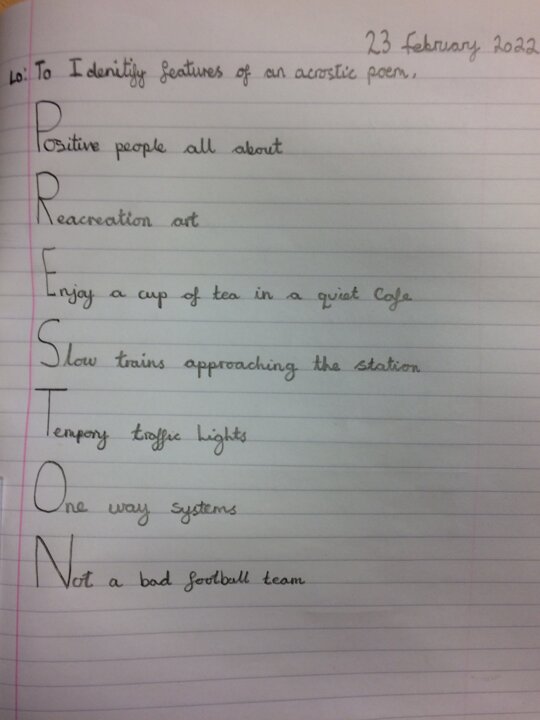 23 February 2022
LO: To Idenitify features of an acrostic poem.
Positive people all about
Reacreation art
Enjoy a cup of tea in a quiet Cafe
Slow trains approaching the station
Tempory traffic lights
One way systems
Not a bad football team